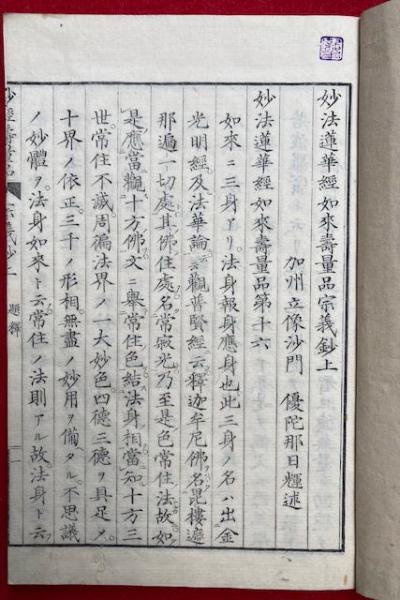 妙法蓮華經如來壽量品宗義鈔上
加州立像沙門 優陀那日輝述
妙法蓮華經如來壽量品第十六
如來ニ三身アリ法身報身應身也此三身ノ名ハ出金
光明經及法華論觀普賢經云釋迦牟尼佛名毘樓遮
那遍一切處其佛住處名常寂光乃至是色常住法故如
是應當觀十方佛文ニ舉常住色結法身相當知十方三
世常住不滅周徧法界ノ一大妙色四德三德ヲ具足ノ
十界ノ依正三千ノ形相無盡ノ妙用ヲ備タル不思議
ノ妙體ヲ法身如來ト云常住ノ法則アル故法身ト云
妙經壽量品 宗義鈔上 題釋 一